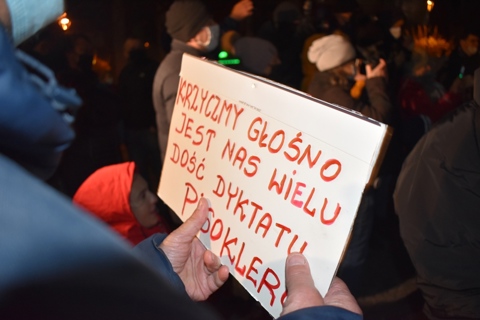 KRZYCZMY GŁOŚNO
JEST NAS WIELU
DOŚĆ DYKTATU